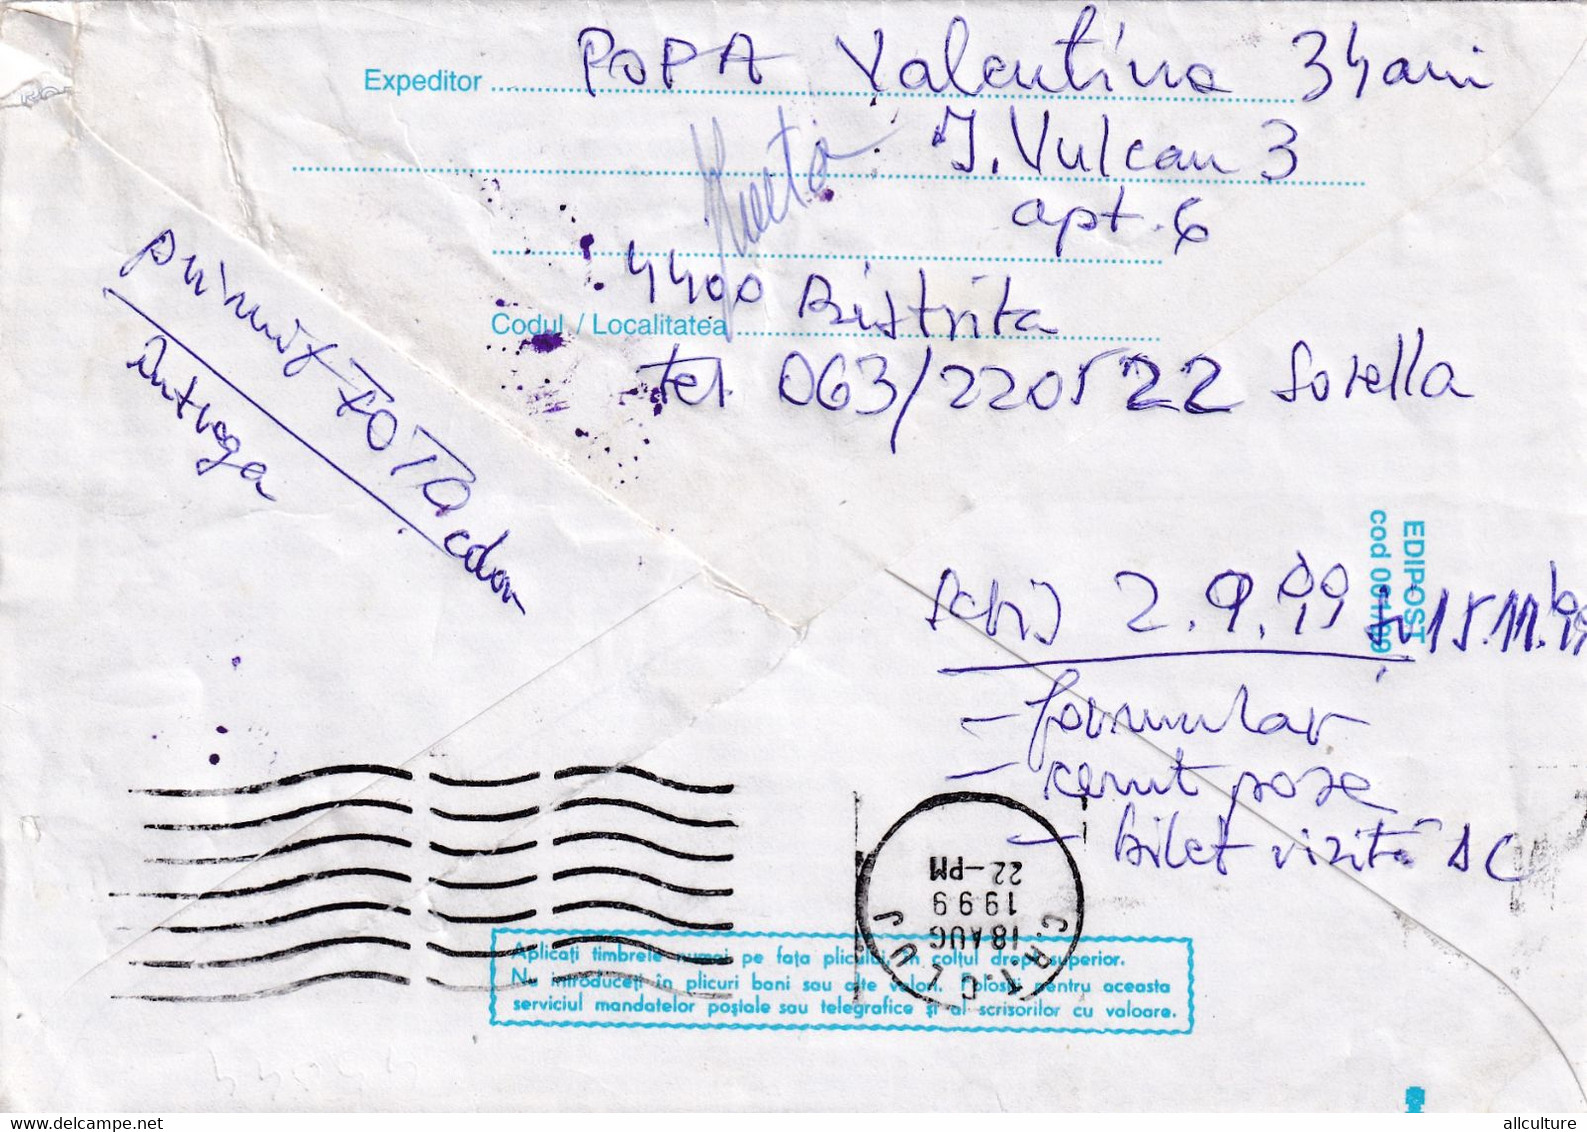 Expeditor POPA Valentina 34 ani
J. Vulcan 3
apt. 6
4400 Bistrita
Codul / Localitatea
tel 063/220522 Sorella
primit FOTO color
intrega
scris 2.9.99 15.11.99
- formular
- cerut poze
- bilet vizită AC
EDIPOST
22-PM
1999
18 AUG
C.R.T. CLUJ
Aplicați timbrele numai pe fața plicului, în colțul drept superior.
Nu introduceți în plicuri bani sau alte valori. Folosiți pentru aceasta
serviciul mandatelor poștale sau telegrafice și al scrisorilor cu valoare.
allculture